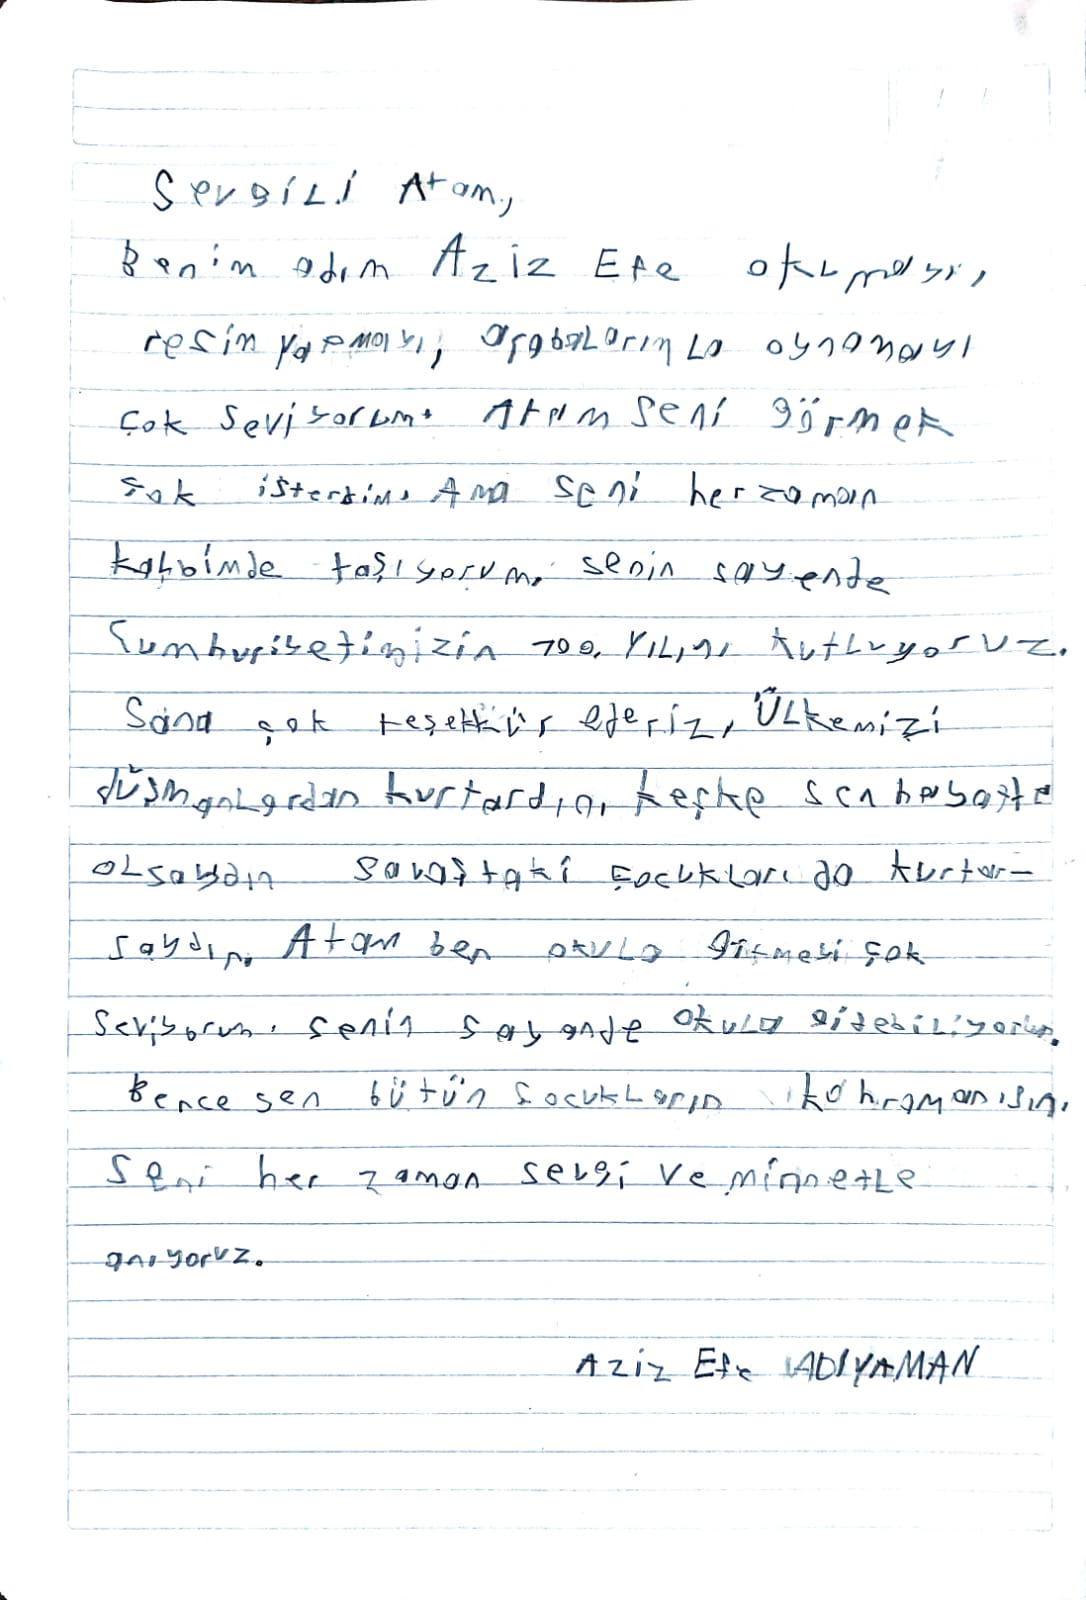 Sevgili Atam,
Benim adım Aziz Efe okumayı,
resim yapmayı, arabalarımla oynamayı
çok seviyorum. Atam seni görmek
çok isterdim. Ama seni herzaman
kalbimde taşıyorum. senin sayende
Cumhuriyetimizin 100. Yılını kutluyoruz.
Sana çok teşekkür ederiz, Ülkemizi
düşmanlardan kurtardın, keşke sen hayatta
olsaydın savaştaki çocukları da kurtar-
saydın. Atam ben okula gitmeyi çok
seviyorum. senin sayende okula gidebiliyorum.
Bence sen bütün çocukların kahramanısın.
Seni her zaman sevgi ve minnetle
anıyoruz.
Aziz Efe ADIYAMAN